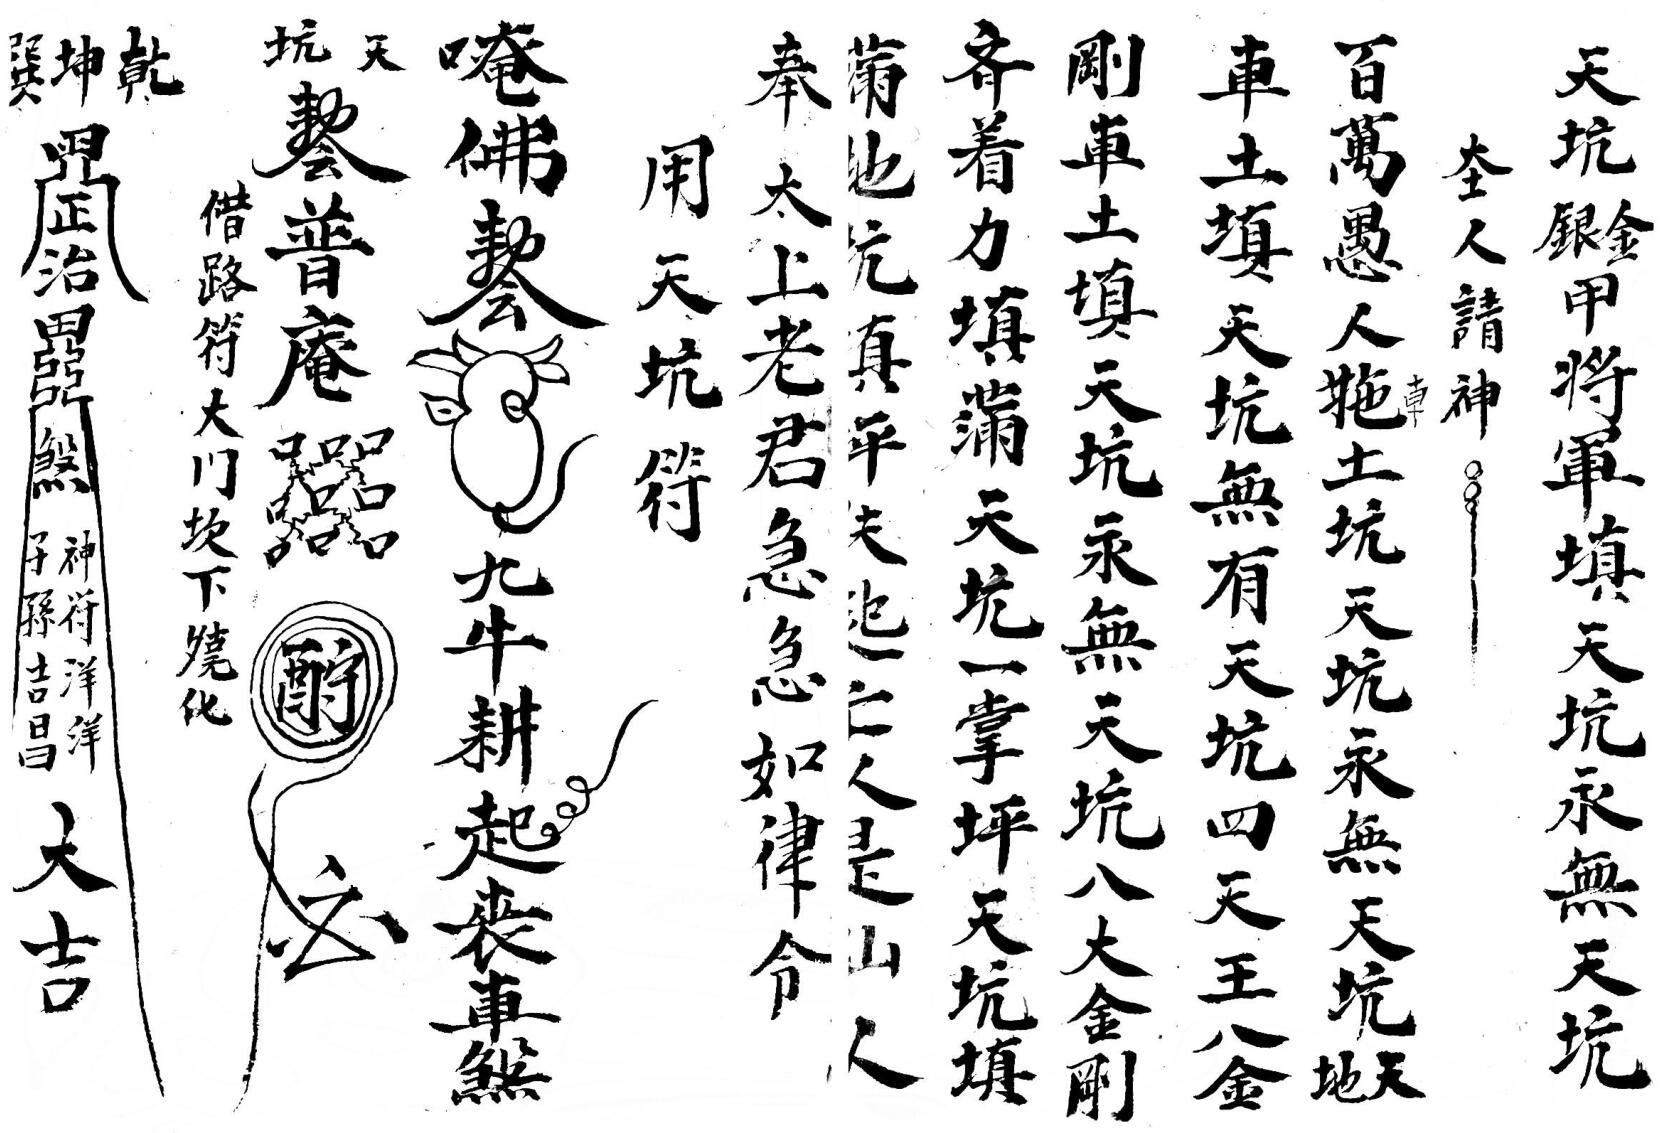 天坑金銀甲將軍填天坑永無天坑
本人請神
百萬愚人拖車土坑天坑永無天坑天地
車土填天坑無有天坑四天王八金
剛車土填天坑永無天坑八大金剛
齐着力填满天坑一掌坪天坑填
满地坑真平 亡人是山人
奉太上老君急急如律令
用天坑符
唵佛勅令九牛耕起丧車煞
天坑勅令普庵
借路符大门坎下燒化
乾坤巽
正治
煞
神符洋洋
子孫吉昌
大吉